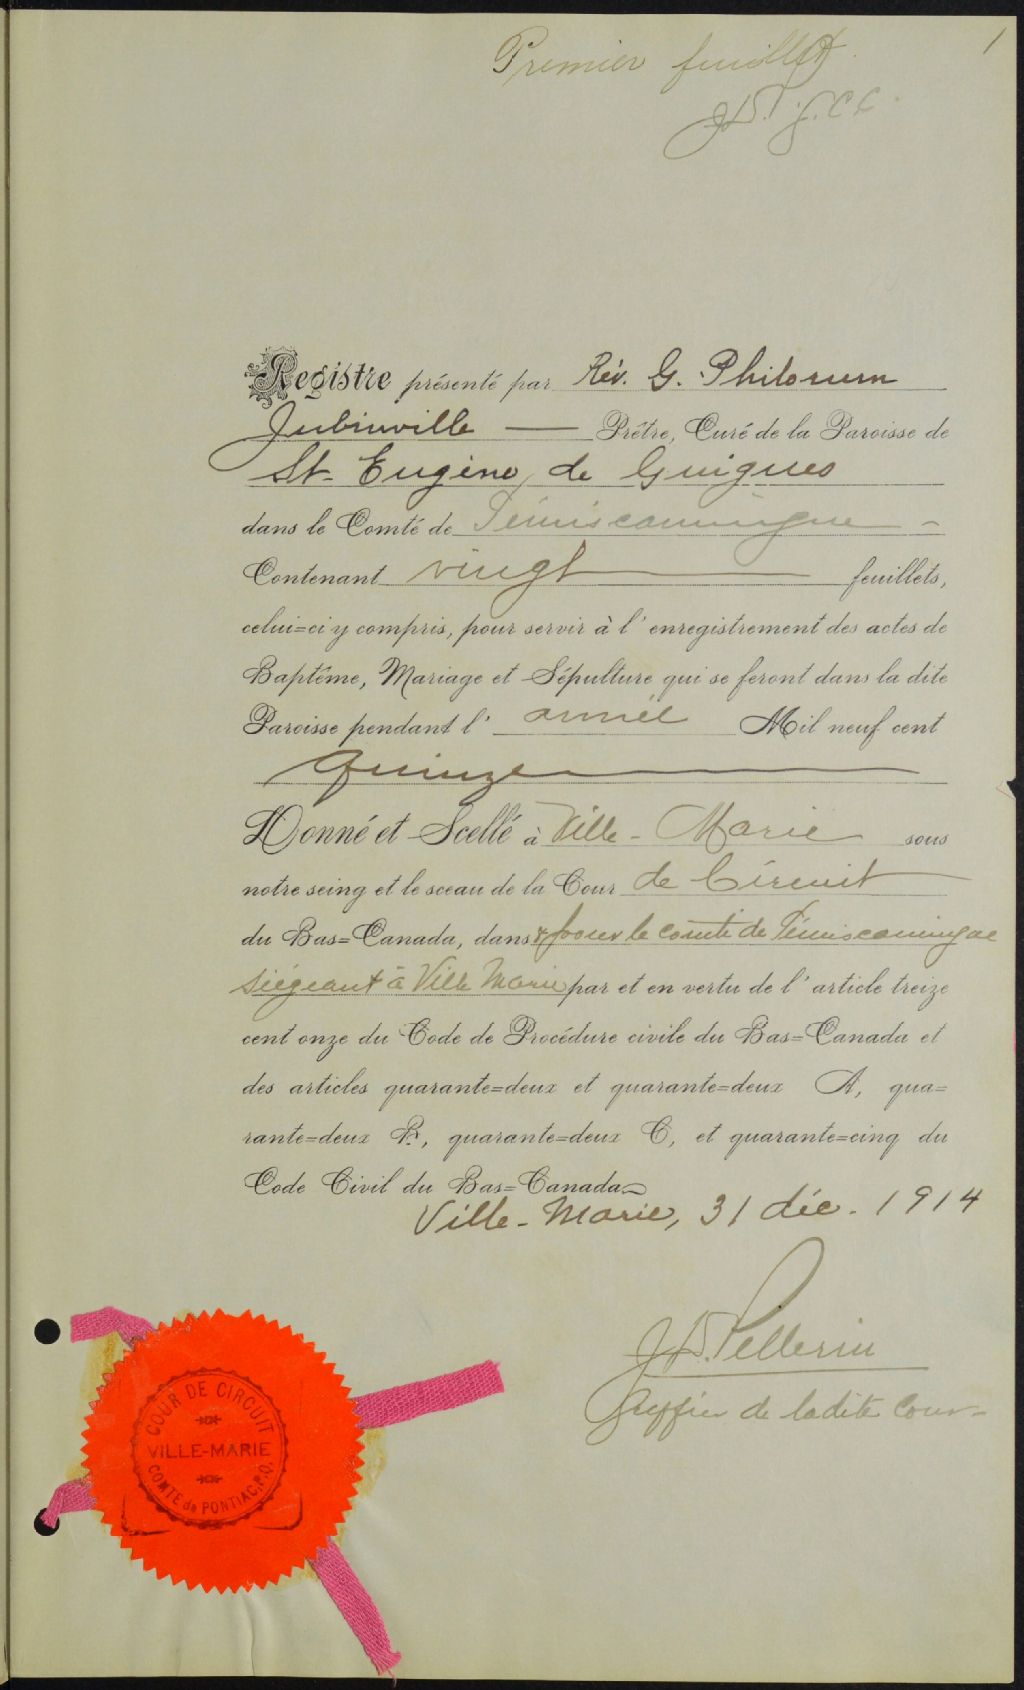 1
Premier feuillet
J.D.P. g.C.C.
Registre présenté par Rév. G. Philorum
Jubinville — Prêtre, Curé de la Paroisse de
St-Eugène de Guigues
dans le Comté de Témiscamingue -
Contenant vingt feuillets,
celui=ci y compris, pour servir à l'enregistrement des actes de
Baptême, Mariage et Sépulture qui se feront dans la dite
Paroisse pendant l'année Mil neuf cent
quinze
Donné et Scellé à Ville-Marie sous
notre seing et le sceau de la Cour de Circuit
du Bas=Canada, dans & pour le comté de Témiscamingue
siégeant à Ville Marie par et en vertu de l'article treize
cent onze du Code de Procédure civile du Bas=Canada et
des articles quarante=deux et quarante=deux A, qua=
rante=deux B, quarante=deux C, et quarante=cinq du
Code Civil du Bas=Canada
Ville-Marie, 31 déc. 1914
J.D. Pellerin
Greffier de ladite Cour-
COUR DE CIRCUIT
VILLE-MARIE
COMTE de PONTIAC, P.Q.